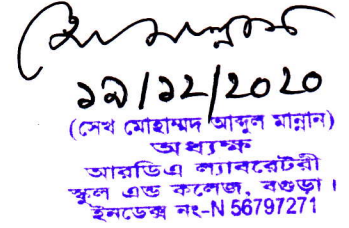 ১৯/১২/২০২০
(সেখ মোহাম্মদ আব্দুল মান্নান)
অধ্যক্ষ
আরডিএ ল্যাবরেটরী
স্কুল এন্ড কলেজ, বগুড়া।
ইনডেক্স নং-N 56797271